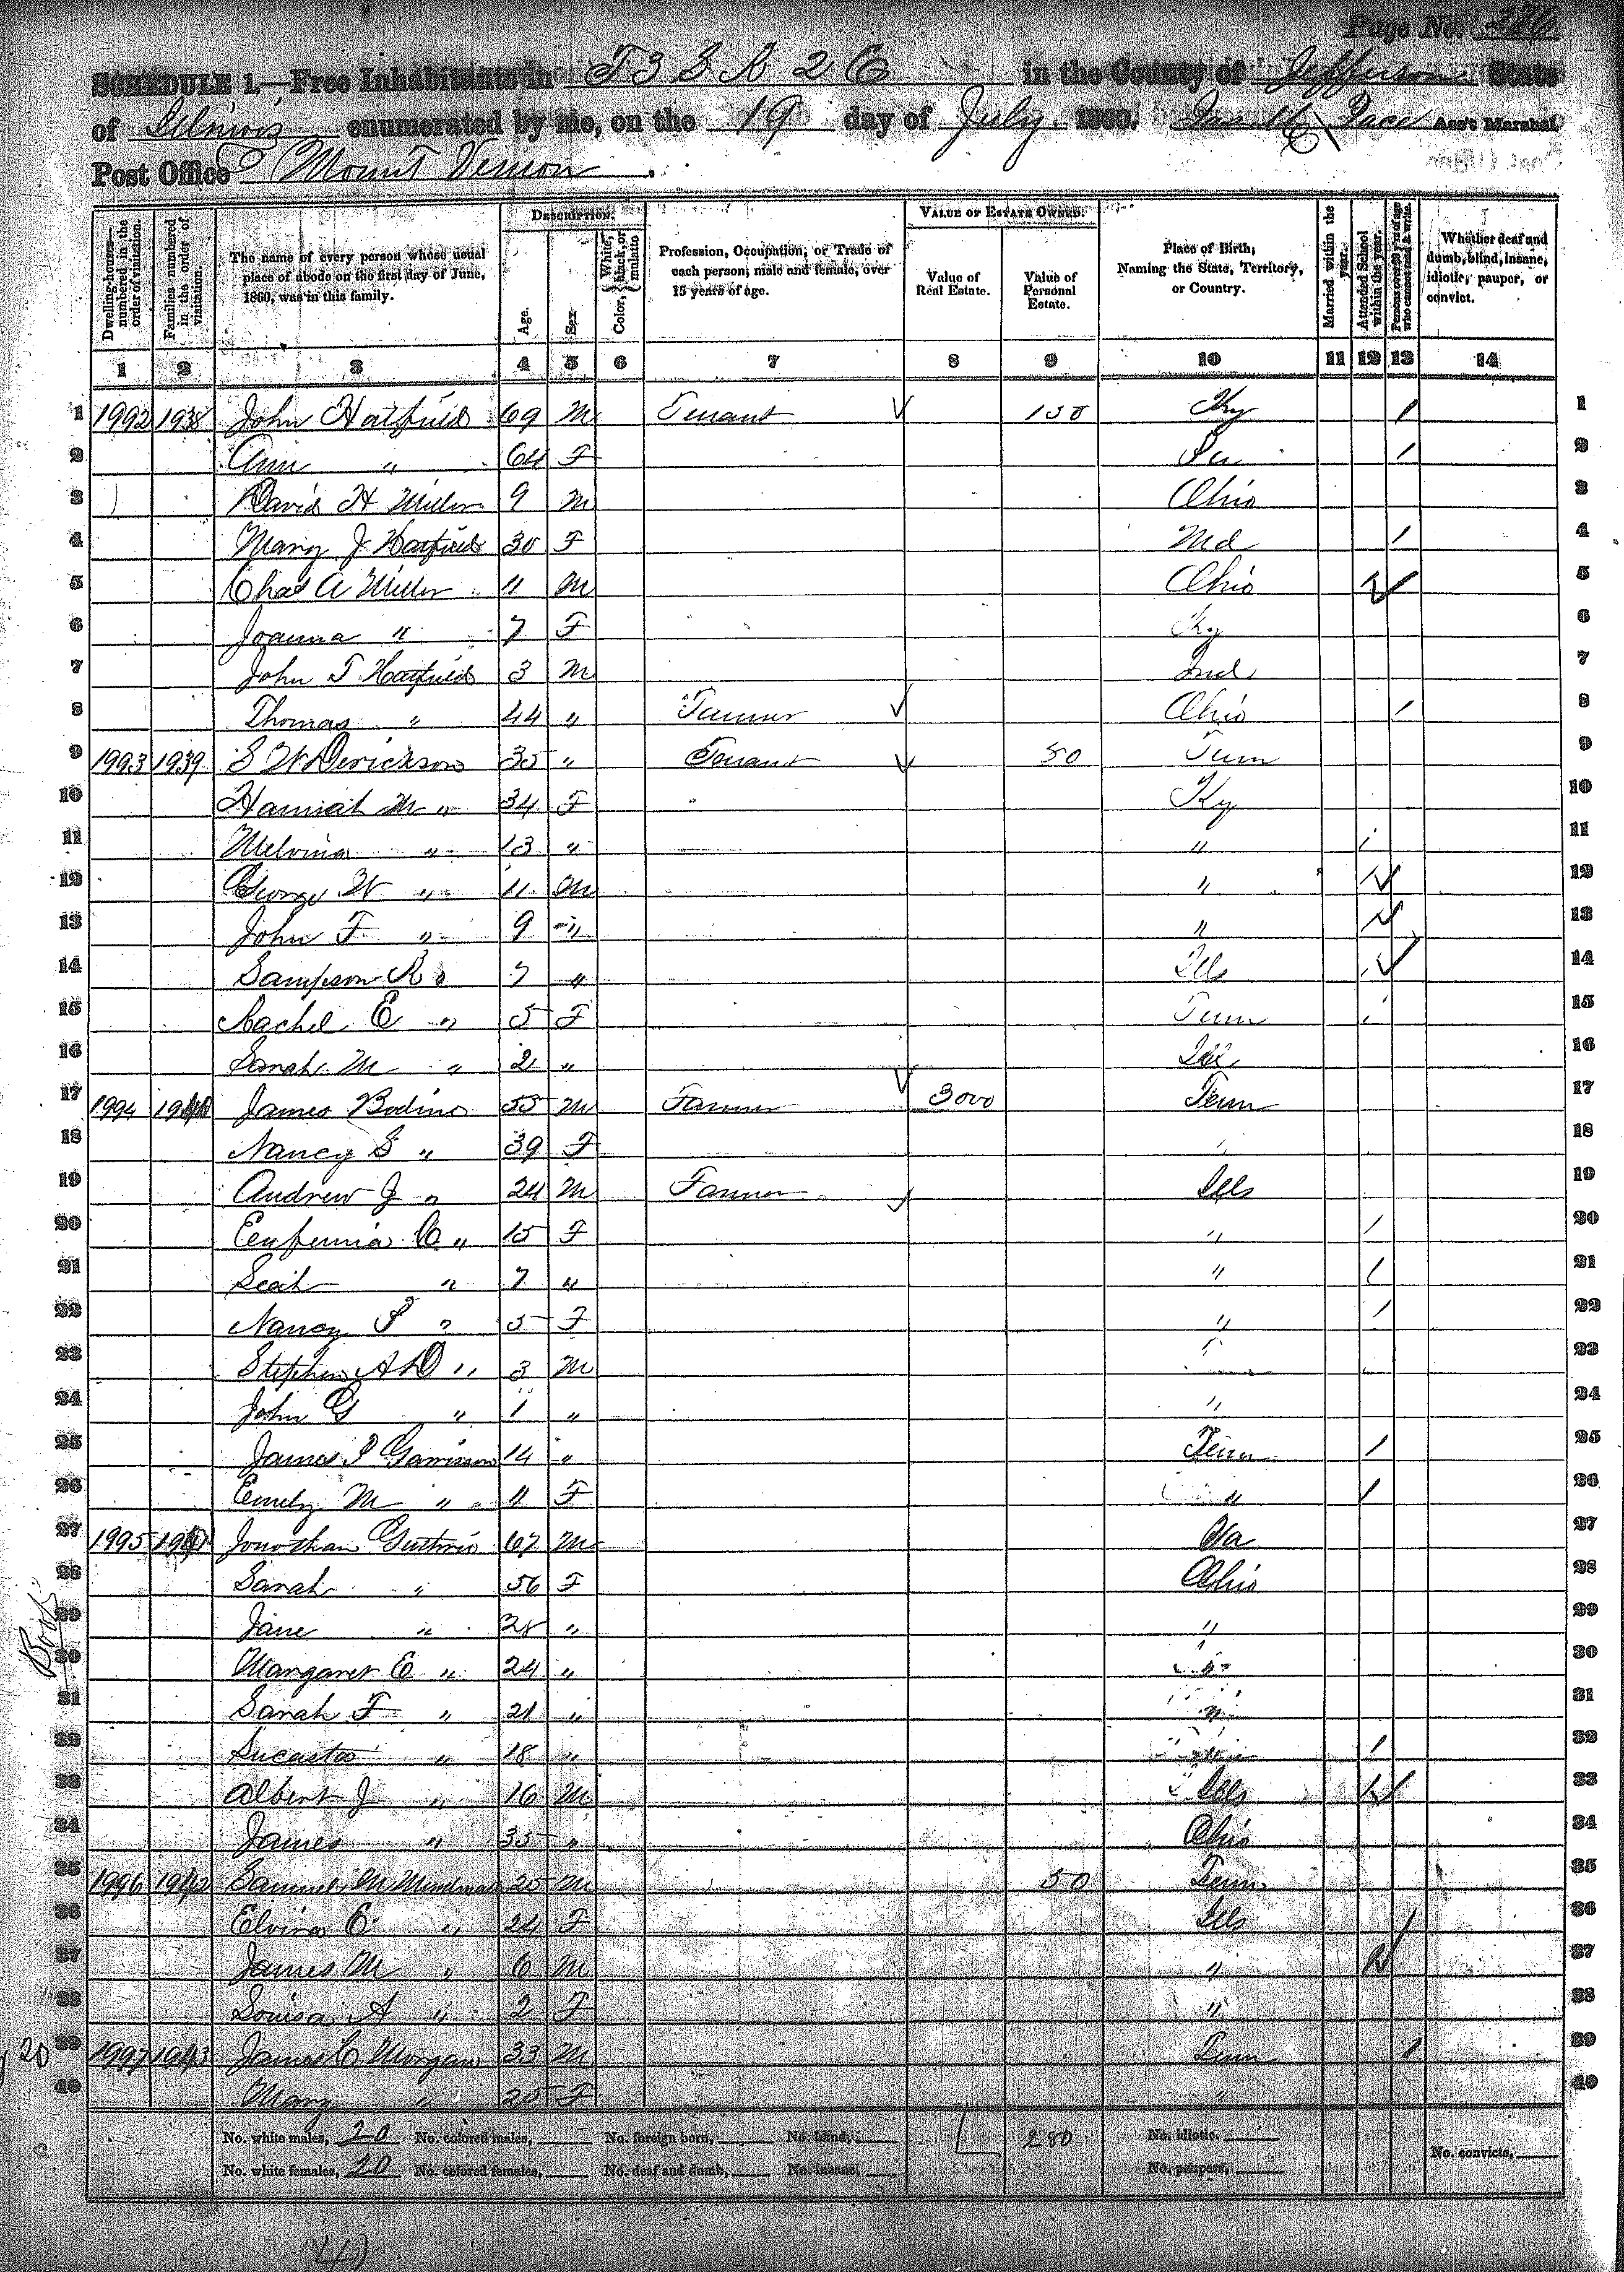 Page No. 276
SCHEDULE 1.—Free Inhabitants in T 3 S R 2 E in the County of Jefferson State
of Illinois enumerated by me, on the 19 day of July 1860. Pace Ass't Marshal.
Post Office Mount Vernon.
Dwelling-houses—numbered in the order of visitation. Families numbered in the order of visitation. The name of every person whose usual place of abode on the first day of June, 1860, was in this family. DESCRIPTION. Age. Sex Color, {White, black, or mulatto Profession, Occupation, or Trade of each person, male and female, over 15 years of age. VALUE OF ESTATE OWNED. Value of Real Estate. Value of Personal Estate. Place of Birth, Naming the State, Territory, or Country. Married within the year. Attended School within the year. Persons over 20 y'rs of age who cannot read & write. Whether deaf and dumb, blind, insane, idiotic, pauper, or convict.
1 2 3 4 5 6 7 8 9 10 11 12 13 14
1 1992 1938 John Hatfield 69 M Tenant 150 Ky / 1
2 Ann " 64 F Pa / 2
3 David H Miller 9 M Ohio 3
4 Mary J Hatfield 30 F Md / 4
5 Chas A Miller 11 M Ohio / 5
6 Joanna " 7 F Ky 6
7 John T Hatfield 3 M Ind 7
8 Thomas " 44 " Farmer Ohio / 8
9 1993 1939 S W Derickson 35 " Tenant 80 Tenn 9
10 Hannah M " 34 F Ky 10
11 Melvina " 13 " " / 11
12 George W " 11 M " / 12
13 John F " 9 " " / 13
14 Sampson R " 7 " Ills / 14
15 Rachel E " 5 F Tenn / 15
16 Sarah M " 2 " Ill 16
17 1994 1940 James Bodine 55 M Farmer 3000 Tenn 17
18 Nancy S " 39 F " 18
19 Andrew J " 24 M Farmer Ills 19
20 Eufemia C " 15 F " / 20
21 Leah " 7 " " / 21
22 Nancy P " 5 F " / 22
23 Stephen A D " 3 M " 23
24 John G " 1 " " 24
25 James P Garrison 14 " Tenn / 25
26 Emily M " 11 F " / 26
27 1995 1941 Jonathan Guthrie 67 M Va 27
28 Sarah " 56 F Ohio 28
29 Jane " 28 " " 29
30 Margaret E " 24 " " 30
31 Sarah F " 21 " " 31
32 " 18 " / 32
33 Albert J " 16 M Ills / 33
34 James " 35 " Ohio 34
35 1996 1942 Samuel M 25 M 50 Tenn 35
36 Elvira C " 24 F Ills / 36
37 James M " 6 M " / 37
38 Louisa A " 2 F " 38
20 39 1997 1943 James C Morgan 33 M Tenn / 39
40 Mary " 25 F " 40
No. white males, 20 No. colored males, No. foreign born, No. blind, 280 No. idiotic,
No. white females, 20 No. colored females, No. deaf and dumb, No. insane, No. paupers, No. convicts,